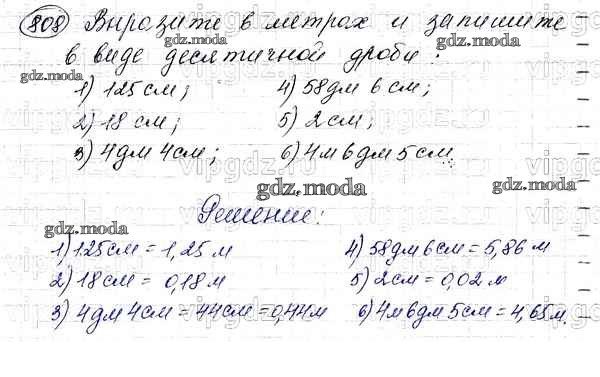 808 Выразите в метрах и запишите
в виде десятичной дроби:
1) 125 см; 4) 58дм 6 см;
2) 18 см; 5) 2 см;
3) 4 дм 4 см; 6) 4 м 6 дм 5 см.
Решение:
1) 125 см = 1,25 м 4) 58 дм 6 см = 5,86 м
2) 18 см = 0,18 м 5) 2 см = 0,02 м
3) 4 дм 4 см = 44 см = 0,44 м 6) 4 м 6 дм 5 см = 4,65 м.
gdz.moda
vipgdz.ru